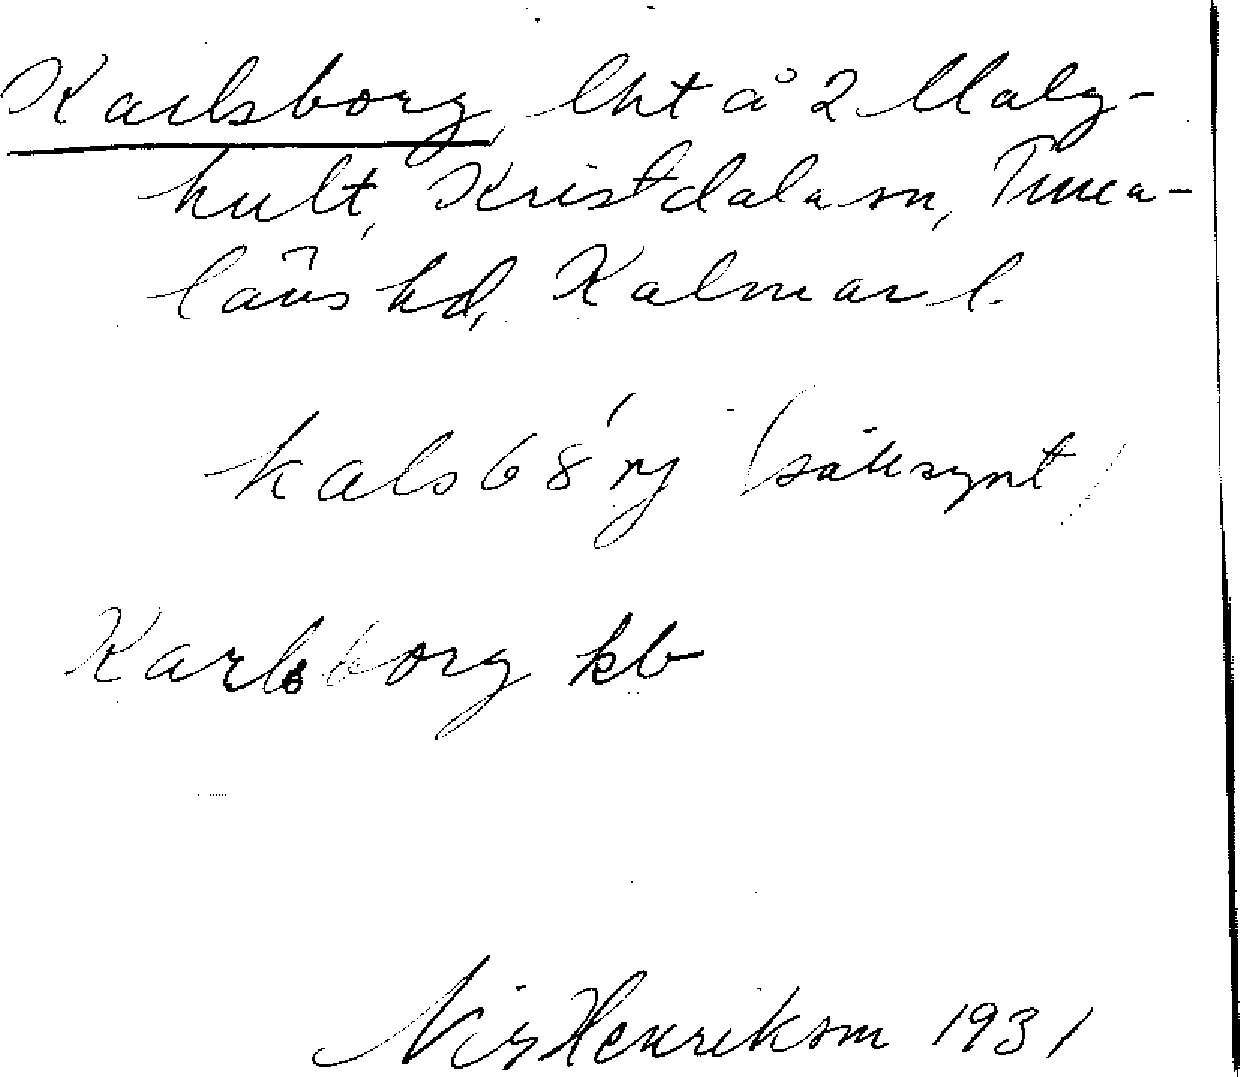 Karlsborg, lht å 2 Malg-
hult, Kristdala sn, Tuna-
läns hd, Kalmar l.
(sällsynt)
Karlsborg kb
Henrikson 1931